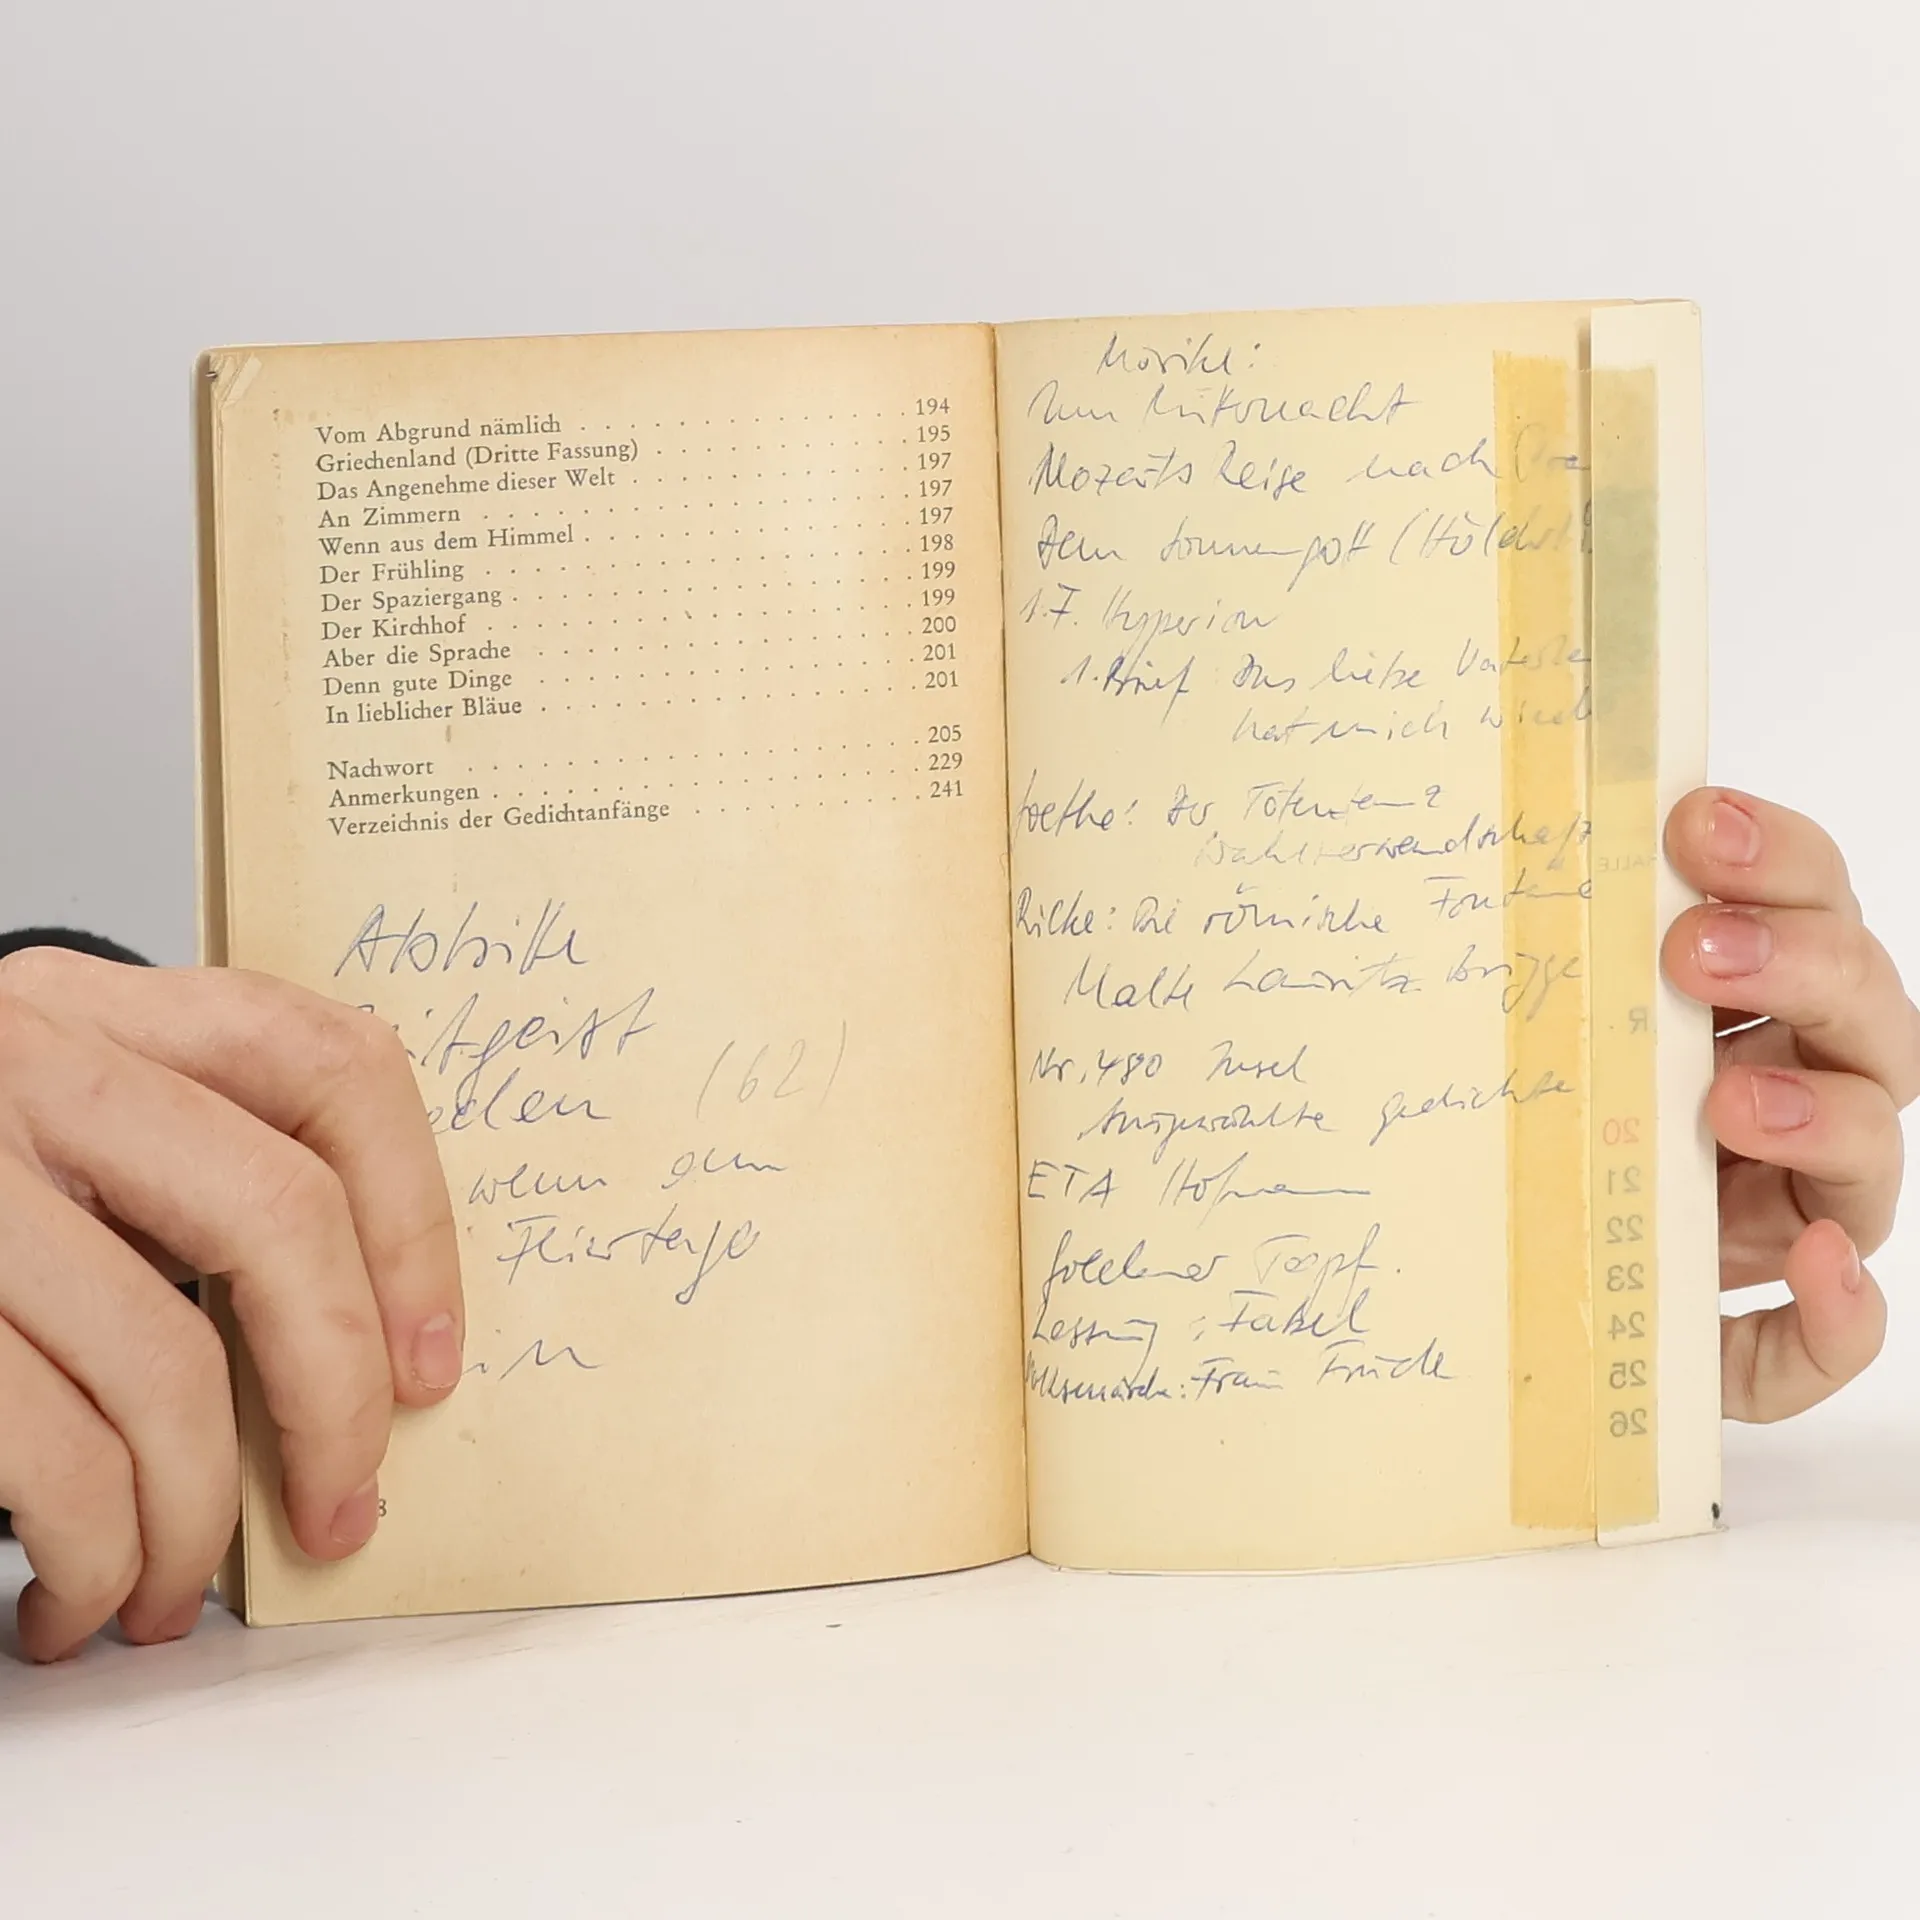 Vom Abgrund nämlich . . . . . . . . . . . . 194
Griechenland (Dritte Fassung) . . . . . . . . . . 195
Das Angenehme dieser Welt . . . . . . . . . . . 197
An Zimmern . . . . . . . . . . . . . . . . 197
Wenn aus dem Himmel . . . . . . . . . . . . . 197
Der Frühling . . . . . . . . . . . . . . . . 198
Der Spaziergang . . . . . . . . . . . . . . . 199
Der Kirchhof . . . . . . . . . . . . . . . . 199
Aber die Sprache . . . . . . . . . . . . . . 200
Denn gute Dinge . . . . . . . . . . . . . . 201
In lieblicher Bläue . . . . . . . . . . . . . . 201
Nachwort . . . . . . . . . . . . . . . . . 205
Anmerkungen . . . . . . . . . . . . . . . . 229
Verzeichnis der Gedichtanfänge . . . . . . . . . 241
itgeist
(62)
wenn
8
Mörike:
Um Mitternacht
Mozarts Reise nach
Dem Sonnengott (Hölderl
1.F. Hyperion
1. Brief Das liebe Vaterla
hat mich wied
Goethe: Der Totentanz
Wahlverwandschaft
Rilke: Die römische Fontäne
Malte Laurits Brigge
Nr. 480 Insel
Ausgewählte Gedichte
ETA Hofmann
Goldener Topf.
Lessing : Fabel
Volksmärch.: Frau
HALLE
R.
20
21
22
23
24
25
26